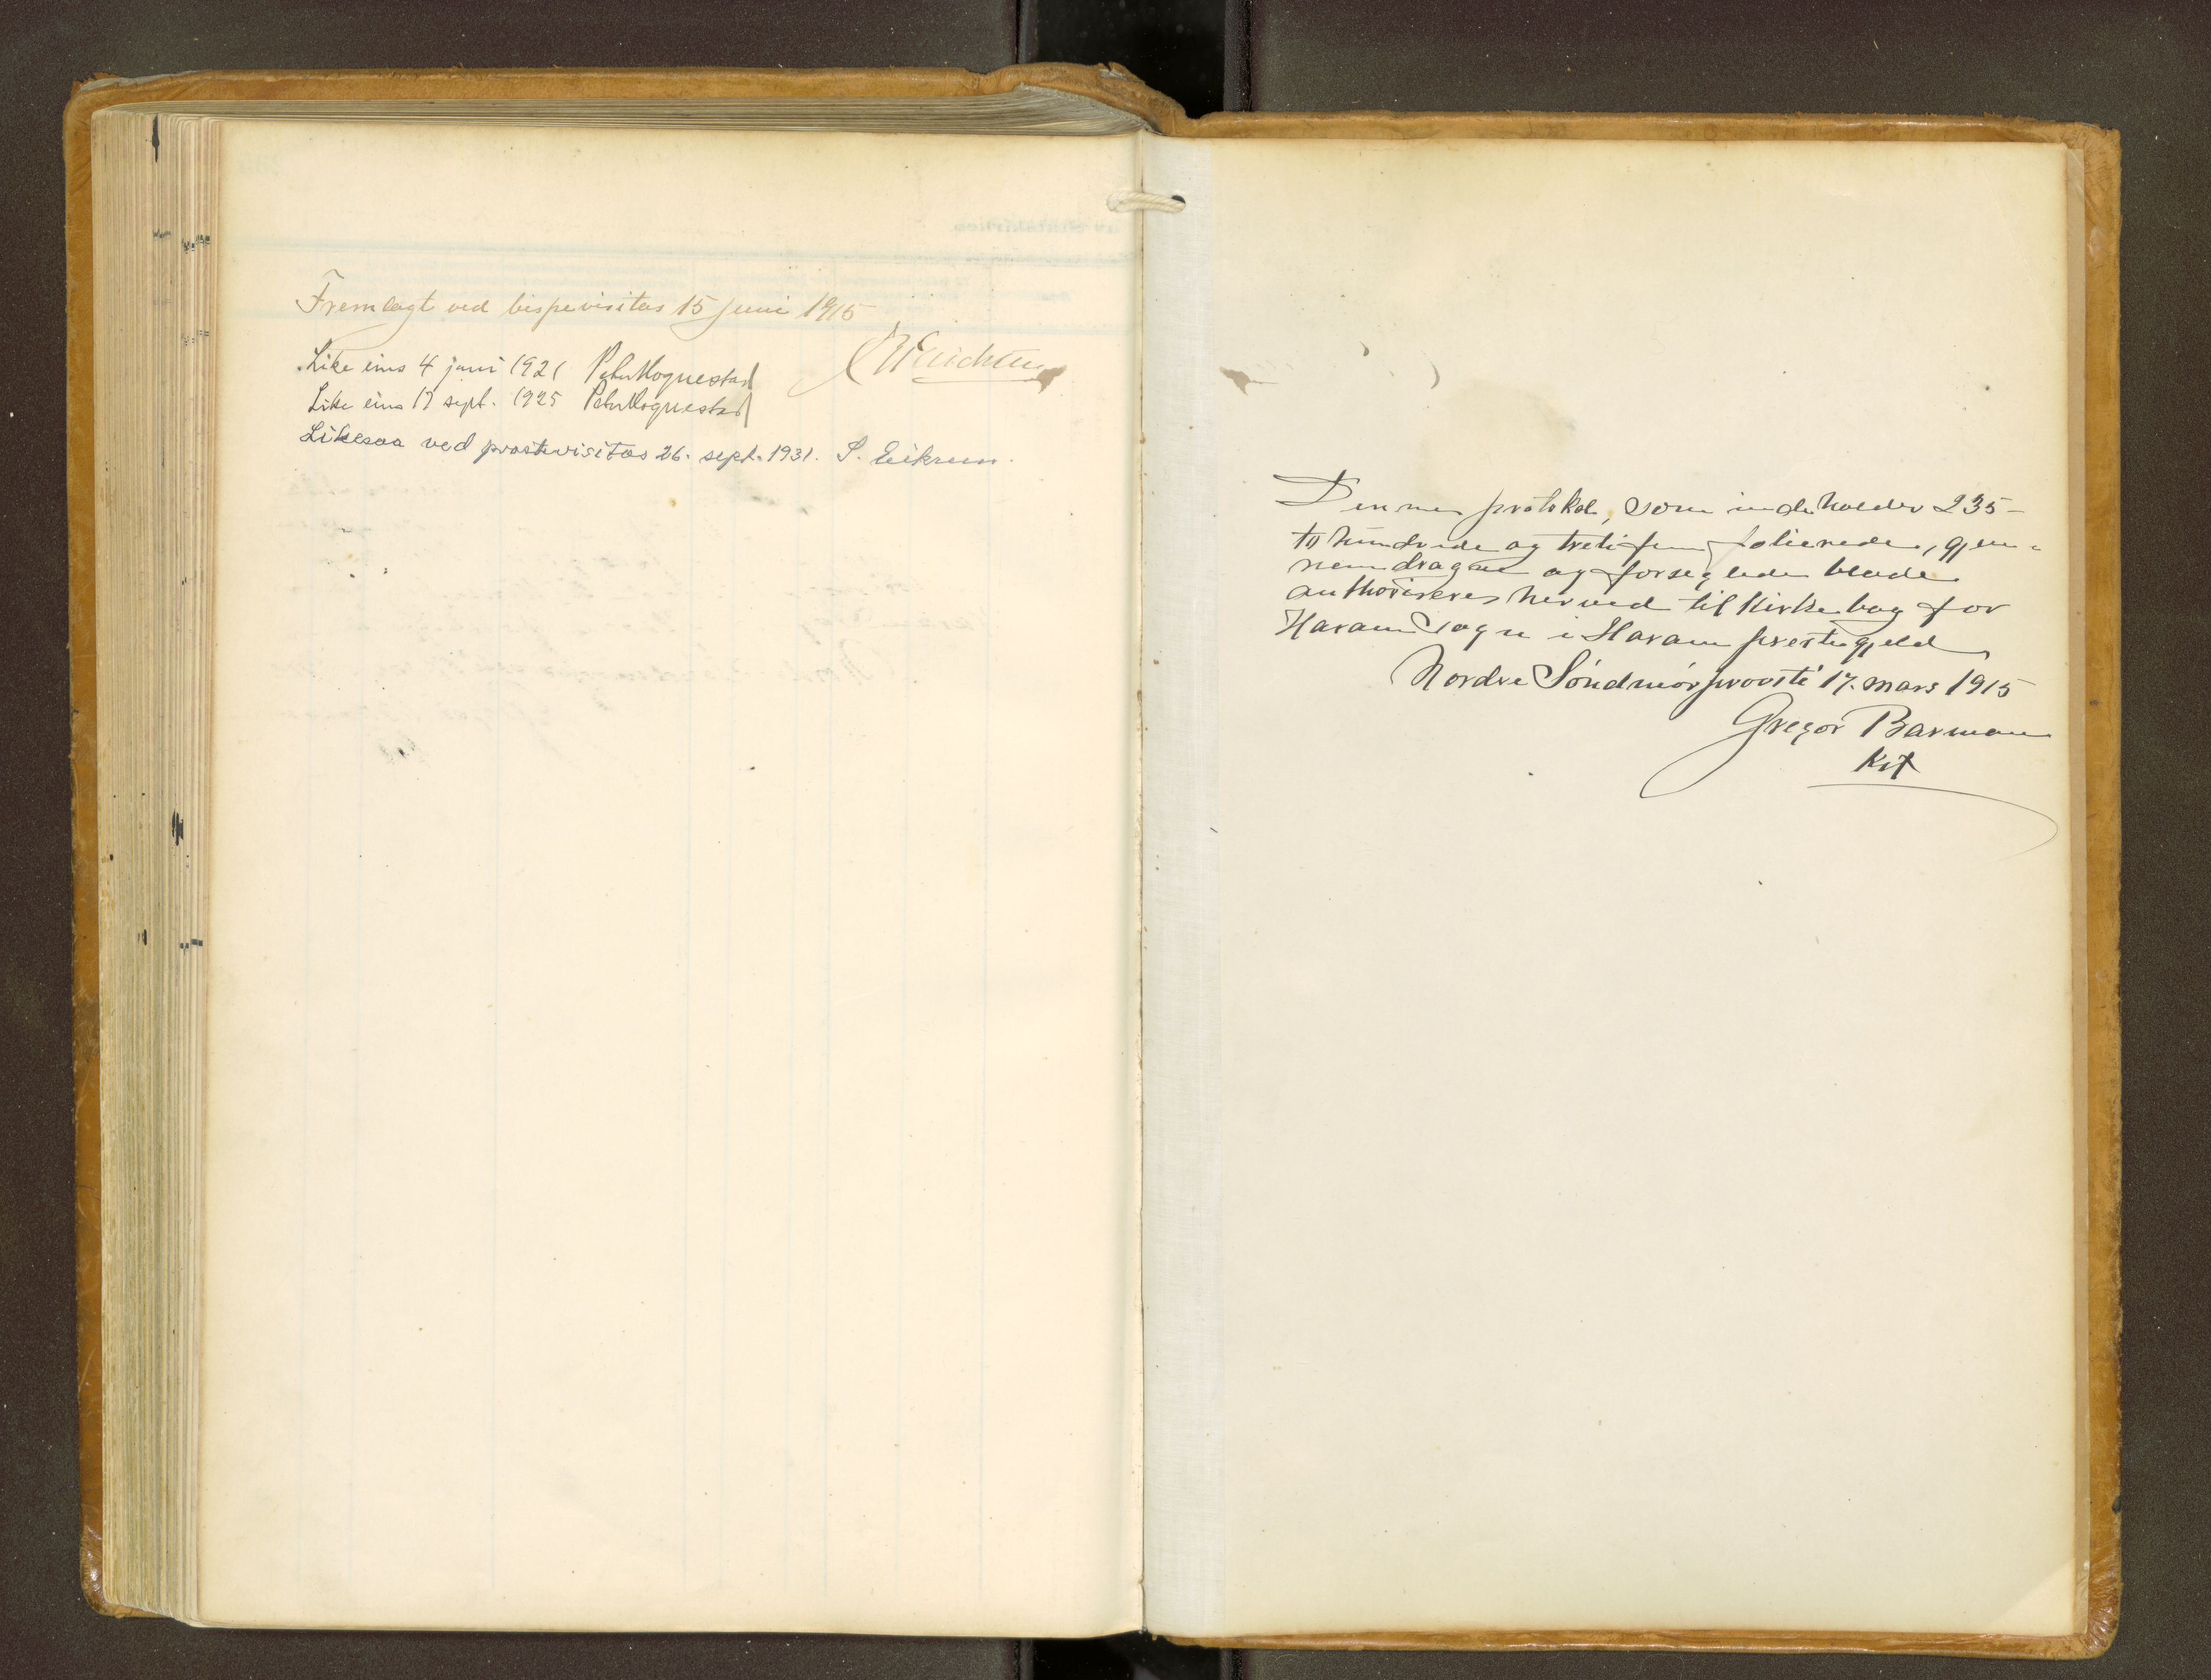 Fremlagt ved bispevisitas 15 juni 1915
Like eins 4 juni 1921 Peter Hognestad
Like eins 17 sept. 1925 Peter Hognestad
Likesaa ved prostevisitas 26. sept. 1931. S. Eikrem.
Denne protokol, som indeholder 235 -
to hundrede og treti fem folierede, gjen-
nemdragne og forseglede blade
authoriseres herved til Kirkebog for
Haram sogn i Haram prestegjeld
Nordre Søndmør provsti 17. mars 1915
Gregor Barman
Kst